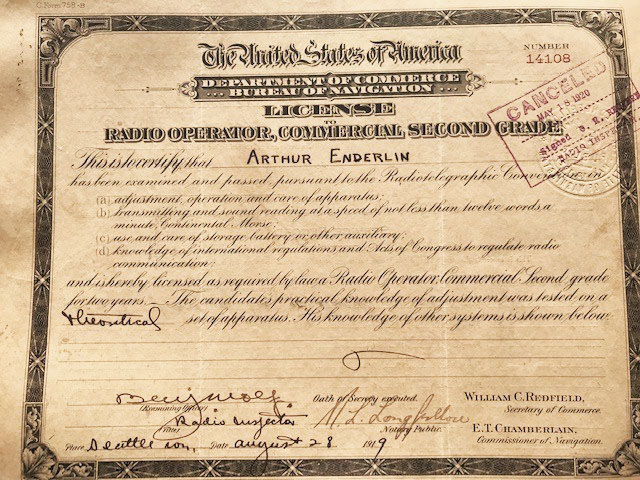 The United States of America
NUMBER
14108
DEPARTMENT OF COMMERCE
BUREAU OF NAVIGATION
LICENSE
TO
RADIO OPERATOR, COMMERCIAL SECOND GRADE
CANCELED
MAY 18 1920
Signed S. R.
RADIO INSP
This is to certify that ARTHUR ENDERLIN
has been examined and passed, pursuant to the Radiotelegraphic Convention, in
(a) adjustment, operation and care of apparatus;
(b) transmitting and sound reading at a speed of not less than twelve words a
minute, Continental Morse;
(c) use and care of storage battery or other auxiliary;
(d) knowledge of international regulations and Acts of Congress to regulate radio
communication;
and is hereby licensed as required by law a Radio Operator, Commercial Second grade
for two years – The candidates practical knowledge of adjustment was tested on a
theoretical set of apparatus. His knowledge of other systems is shown below.
Oath of Secrecy executed.
WILLIAM C. REDFIELD,
(Examining Officer)
Secretary of Commerce.
Radio Inspector
(Title)
Notary Public.
E.T. CHAMBERLAIN,
Place, Seattle Date august 28 1919
Commissioner of Navigation.